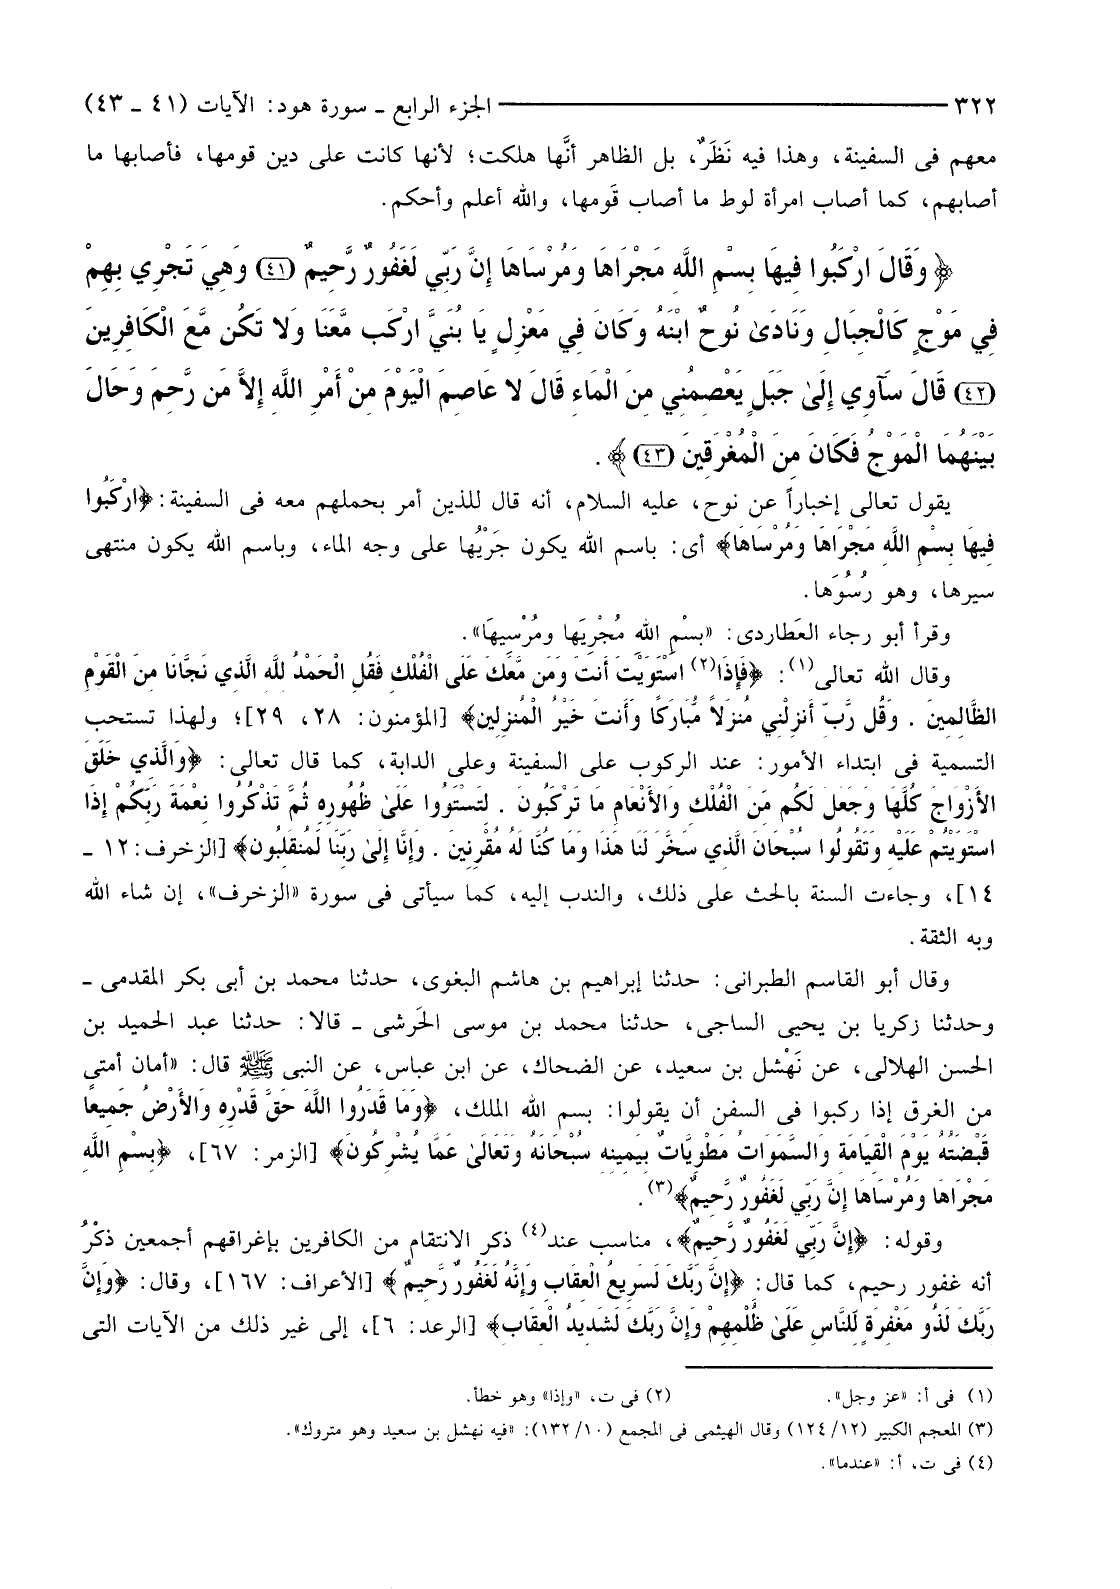 ٣٢٢ الجزء الرابع ـ سورة هود: الآيات (٤١ ـ ٤٣)
معهم فى السفينة، وهذا فيه نَظَرٌ، بل الظاهر أنَّها هلكت؛ لأنها كانت على دين قومها، فأصابها ما
أصابهم، كما أصاب امرأة لوط ما أصاب قَومها، والله أعلم وأحكم.
﴿ وَقَالَ ارْكَبُوا فِيهَا بِسْمِ اللَّهِ مَجْرَاهَا وَمُرْسَاهَا إِنَّ رَبِّي لَغَفُورٌ رَّحِيمٌ (٤١) وَهِيَ تَجْرِي بِهِمْ
فِي مَوْجٍ كَالْجِبَالِ وَنَادَىٰ نُوحٌ ابْنَهُ وَكَانَ فِي مَعْزِلٍ يَا بُنَيَّ ارْكَب مَّعَنَا وَلا تَكُن مَّعَ الْكَافِرِينَ
(٤٢) قَالَ سَآوِي إِلَىٰ جَبَلٍ يَعْصِمُنِي مِنَ الْمَاءِ قَالَ لا عَاصِمَ الْيَوْمَ مِنْ أَمْرِ اللَّهِ إِلاَّ مَن رَّحِمَ وَحَالَ
بَيْنَهُمَا الْمَوْجُ فَكَانَ مِنَ الْمُغْرَقِينَ (٤٣) ﴾ .
يقول تعالى إخباراً عن نوح، عليه السلام، أنه قال للذين أمر بحملهم معه فى السفينة: ﴿ارْكَبُوا
فِيهَا بِسْمِ اللَّهِ مَجْرَاهَا وَمُرْسَاهَا﴾ أى: باسم الله يكون جَرْيُها على وجه الماء، وباسم الله يكون منتهى
سيرها، وهو رُسُوّها.
وقرأ أبو رجاء العَطاردى: «بِسْمِ اللهِ مُجْرِيَها ومُرْسِيهَا».
وقال الله تعالى(١): ﴿فَإِذَا(٢) اسْتَوَيْتَ أَنتَ وَمَن مَّعَكَ عَلَى الْفُلْكِ فَقُلِ الْحَمْدُ لِلَّهِ الَّذِي نَجَّانَا مِنَ الْقَوْمِ
الظَّالِمِينَ . وَقُل رَّبِّ أَنزِلْنِي مُنزَلاً مُّبَارَكًا وَأَنتَ خَيْرُ الْمُنزِلِينَ﴾ [المؤمنون: ٢٨، ٢٩]؛ ولهذا تستحب
التسمية فى ابتداء الأمور: عند الركوب على السفينة وعلى الدابة، كما قال تعالى: ﴿وَالَّذِي خَلَقَ
الأَزْوَاجَ كُلَّهَا وَجَعَلَ لَكُم مِّنَ الْفُلْكِ وَالأَنْعَامِ مَا تَرْكَبُونَ . لِتَسْتَوُوا عَلَىٰ ظُهُورِهِ ثُمَّ تَذْكُرُوا نِعْمَةَ رَبِّكُمْ إِذَا
اسْتَوَيْتُمْ عَلَيْهِ وَتَقُولُوا سُبْحَانَ الَّذِي سَخَّرَ لَنَا هَذَا وَمَا كُنَّا لَهُ مُقْرِنِينَ . وَإِنَّا إِلَىٰ رَبِّنَا لَمُنقَلِبُونَ﴾ [الزخرف: ١٢ ـ
١٤]، وجاءت السنة بالحث على ذلك، والندب إليه، كما سيأتى فى سورة «الزخرف»، إن شاء الله
وبه الثقة.
وقال أبو القاسم الطبرانى: حدثنا إبراهيم بن هاشم البغوى، حدثنا محمد بن أبى بكر المقدمى ـ
وحدثنا زكريا بن يحيى الساجى، حدثنا محمد بن موسى الحَرشى ـ قالا: حدثنا عبد الحميد بن
الحسن الهلالى، عن نَهْشل بن سعيد، عن الضحاك، عن ابن عباس، عن النبى ﷺ قال: «أمان أمتى
من الغرق إذا ركبوا فى السفن أن يقولوا: بسم الله الملك، ﴿وَمَا قَدَرُوا اللَّهَ حَقَّ قَدْرِهِ وَالأَرْضُ جَمِيعًا
قَبْضَتُهُ يَوْمَ الْقِيَامَةِ وَالسَّمَوَاتُ مَطْوِيَّاتٌ بِيَمِينِهِ سُبْحَانَهُ وَتَعَالَىٰ عَمَّا يُشْرِكُونَ﴾ [الزمر: ٦٧]، ﴿بِسْمِ اللَّهِ
مَجْرَاهَا وَمُرْسَاهَا إِنَّ رَبِّي لَغَفُورٌ رَّحِيمٌ﴾(٣).
وقوله: ﴿إِنَّ رَبِّي لَغَفُورٌ رَّحِيمٌ﴾، مناسب عند(٤) ذكر الانتقام من الكافرين بإغراقهم أجمعين ذكْرُ
أنه غفور رحيم، كما قال: ﴿إِنَّ رَبَّكَ لَسَرِيعُ الْعِقَابِ وَإِنَّهُ لَغَفُورٌ رَّحِيمٌ ﴾ [الأعراف: ١٦٧]، وقال: ﴿وَإِنَّ
رَبَّكَ لَذُو مَغْفِرَةٍ لِّلنَّاسِ عَلَىٰ ظُلْمِهِمْ وَإِنَّ رَبَّكَ لَشَدِيدُ الْعِقَابِ﴾ [الرعد: ٦]، إلى غير ذلك من الآيات التى
(١) فى أ: «عز وجل». (٢) فى ت، «وإذا» وهو خطأ.
(٣) المعجم الكبير (١٢/ ١٢٤) وقال الهيثمى فى المجمع (١٠/ ١٣٢): «فيه نهشل بن سعيد وهو متروك».
(٤) فى ت، أ: «عندما».